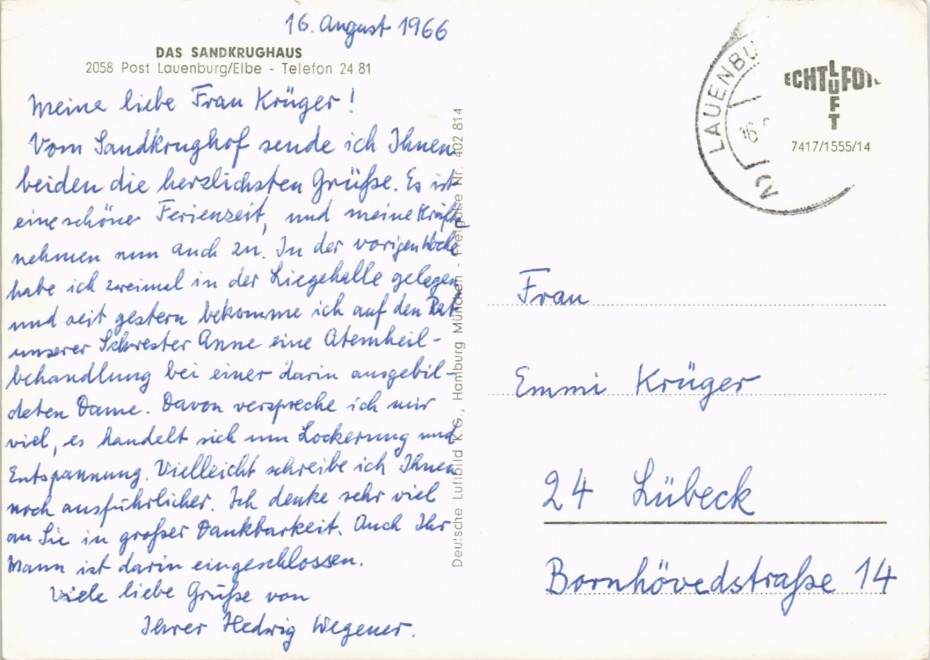 16. August 1966
DAS SANDKRUGHAUS
2058 Post Lauenburg/Elbe - Telefon 24 81
Meine liebe Frau Krüger!
Vom Sandkrughof sende ich Ihnen
beiden die herzlichsten Grüße. Es ist
eine schöne Ferienzeit, und meine Kräfte
nehmen nun auch zu. In der vorigen Woche
habe ich zweimal in der Liegehalle gelegen
und seit gestern bekomme ich auf den Rat
unserer Schwester Anne eine Atemheil-
behandlung bei einer darin ausgebil-
deten Dame. Davon verspreche ich mir
viel, es handelt sich um Lockerung und
Entspannung. Vielleicht schreibe ich Ihnen
noch ausführlicher. Ich denke sehr viel
an Sie in großer Dankbarkeit. Auch Ihr
Mann ist darin eingeschlossen.
Viele liebe Grüße von
Ihrer Hedwig Wegener.
Deutsche Luftbild K.G., Hamburg München - Freigabe Nr. 402 814
LAUENBU
16.
ECHT LUFT FOTO
7417/1555/14
Frau
Emmi Krüger
24 Lübeck
Bornhövedstraße 14